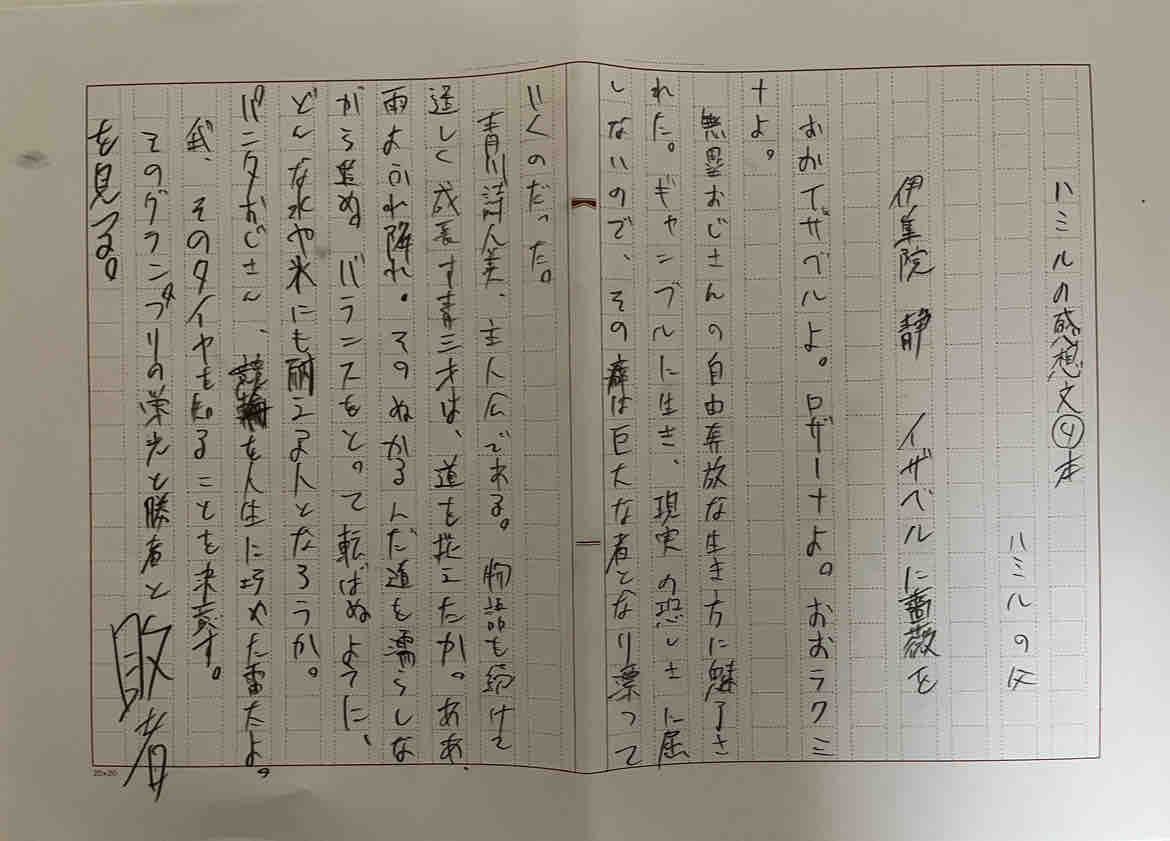 ハミルの感想文④本
ハミルの父
伊集院 静 イザベルに薔薇を
おおイザベルよ。ロザーナよ。おおラクミ
ナよ。
無塁おじさんの自由奔放な生き方に魅了さ
れた。ギャンブルに生き、現実の恐しさに屈
しないので、その癖は巨大な者となり漂って
いくのだった。
青川詩人美、主人広である。物語も続けて
逞しく成長す青三才は、道も従えたか。ああ、
雨よふれ降れ。そのぬかるんだ道も濡らしな
がら進ぬ。バランスをとって転ばぬように、
どんな水や氷にも耐える人となろうか。
バニタおじさん、競輪を人生に求めた雷たよ。
、そのタイヤも知ることを未意す。
そのグランプリの栄光と勝者と敗者
を見つる。
20×20